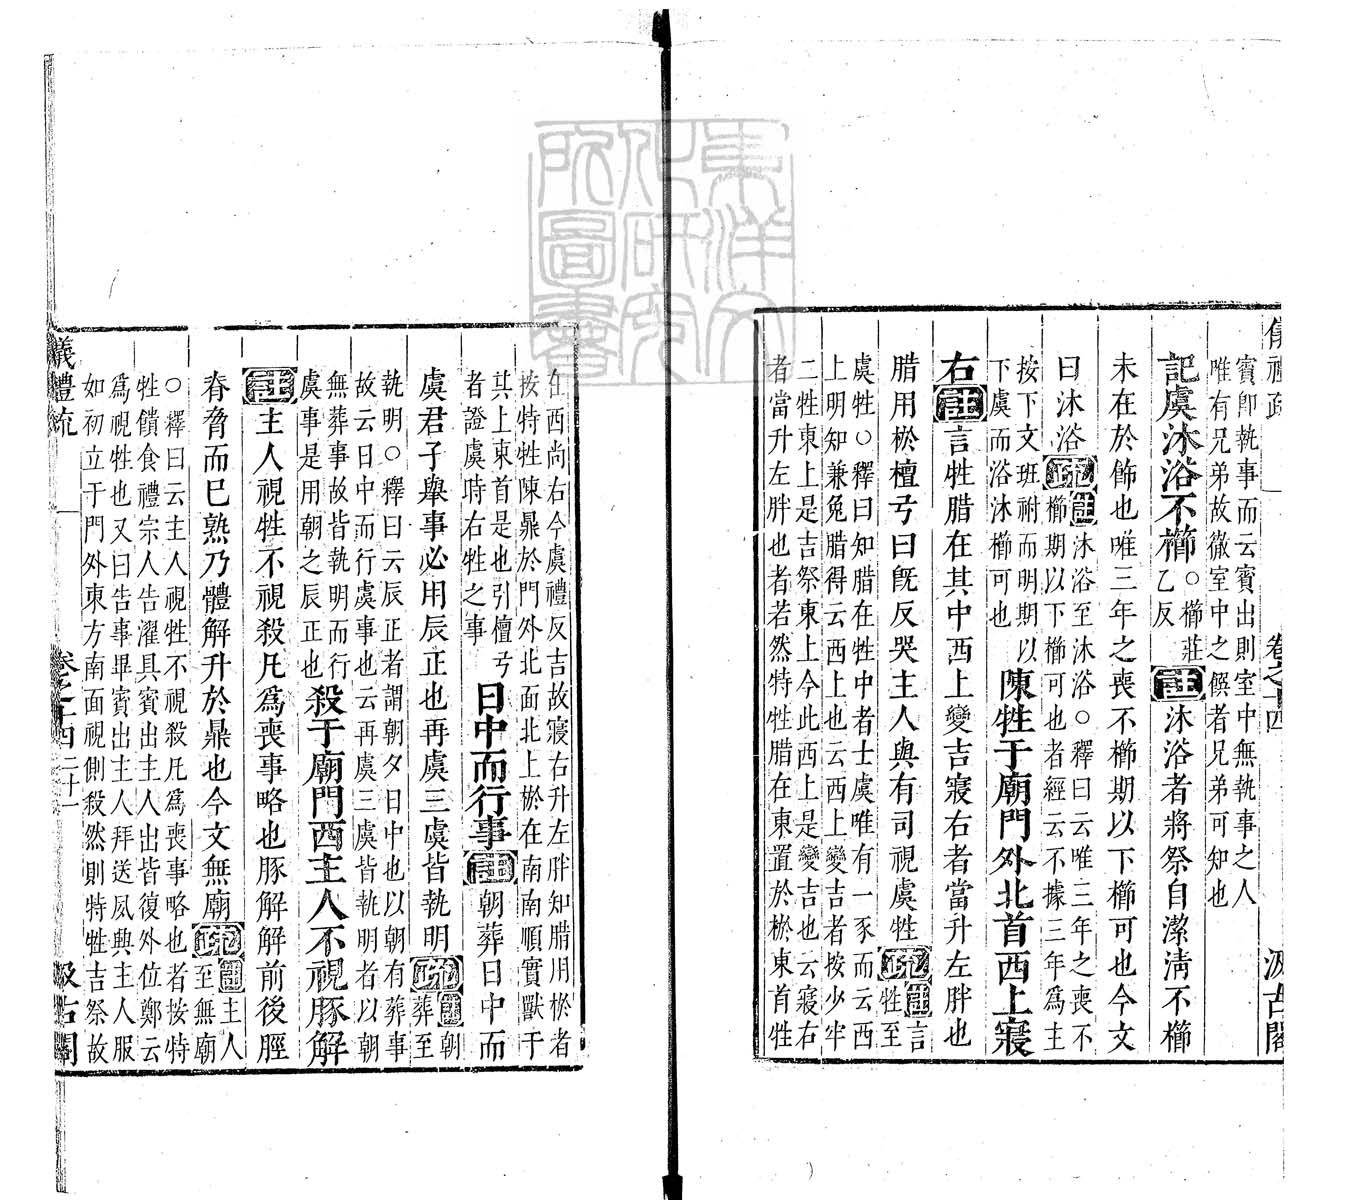 賓卽執事而云賓出則室中無執事之人
唯有兄弟故徹室中之饌者兄弟可知也
記虞沐浴不櫛○櫛莊乙反註沐浴者將祭自潔淸不櫛
未在於飾也唯三年之喪不櫛期以下櫛可也今文
曰沐浴疏註沐浴至沐浴○釋曰云唯三年之喪不櫛期以下櫛可也者經云不據三年爲主
按下文班祔而明期以下虞而浴沐櫛可也陳牲于廟門外北首西上寢
右註言牲腊在其中西上變吉寢右者當升左胖也
腊用棜檀弓曰旣反哭主人與有司視虞牲疏註言牲至
虞牲○釋曰知腊在牲中者士虞唯有一豕而云西
上明知兼兔腊得云西上也云西上變吉者按少牢
二牲東上是吉祭東上今此西上是變吉也云寢右
者當升左胖也者若然特牲腊在東置於棜東首牲
在西尚右今虞禮反吉故寢右升左胖知腊用棜者
按特牲陳鼎於門外北面北上棜在南南順實獸于
其上東首是也引檀弓者證虞時右牲之事日中而行事註朝葬日中而
虞君子舉事必用辰正也再虞三虞皆執明疏註朝葬至
執明○釋曰云辰正者謂朝夕日中也以朝有葬事
故云日中而行虞事也云再虞三虞皆執明者以朝
無葬事故皆執明而行虞事是用朝之辰正也殺于廟門西主人不視豚解
註主人視牲不視殺凡爲喪事略也豚解解前後脛
脊脅而已熟乃體解升於鼎也今文無廟疏註主人至無廟
○釋曰云主人視牲不視殺凡爲喪事略也者按特
牲饋食禮宗人告濯具賓出主人出皆復外位鄭云
爲視牲也又曰告事畢賓出主人拜送夙興主人服
如初立于門外東方南面視側殺然則特牲吉祭故
儀禮疏 卷之十四 二十一 汲古閣
東洋文化研究所圖書